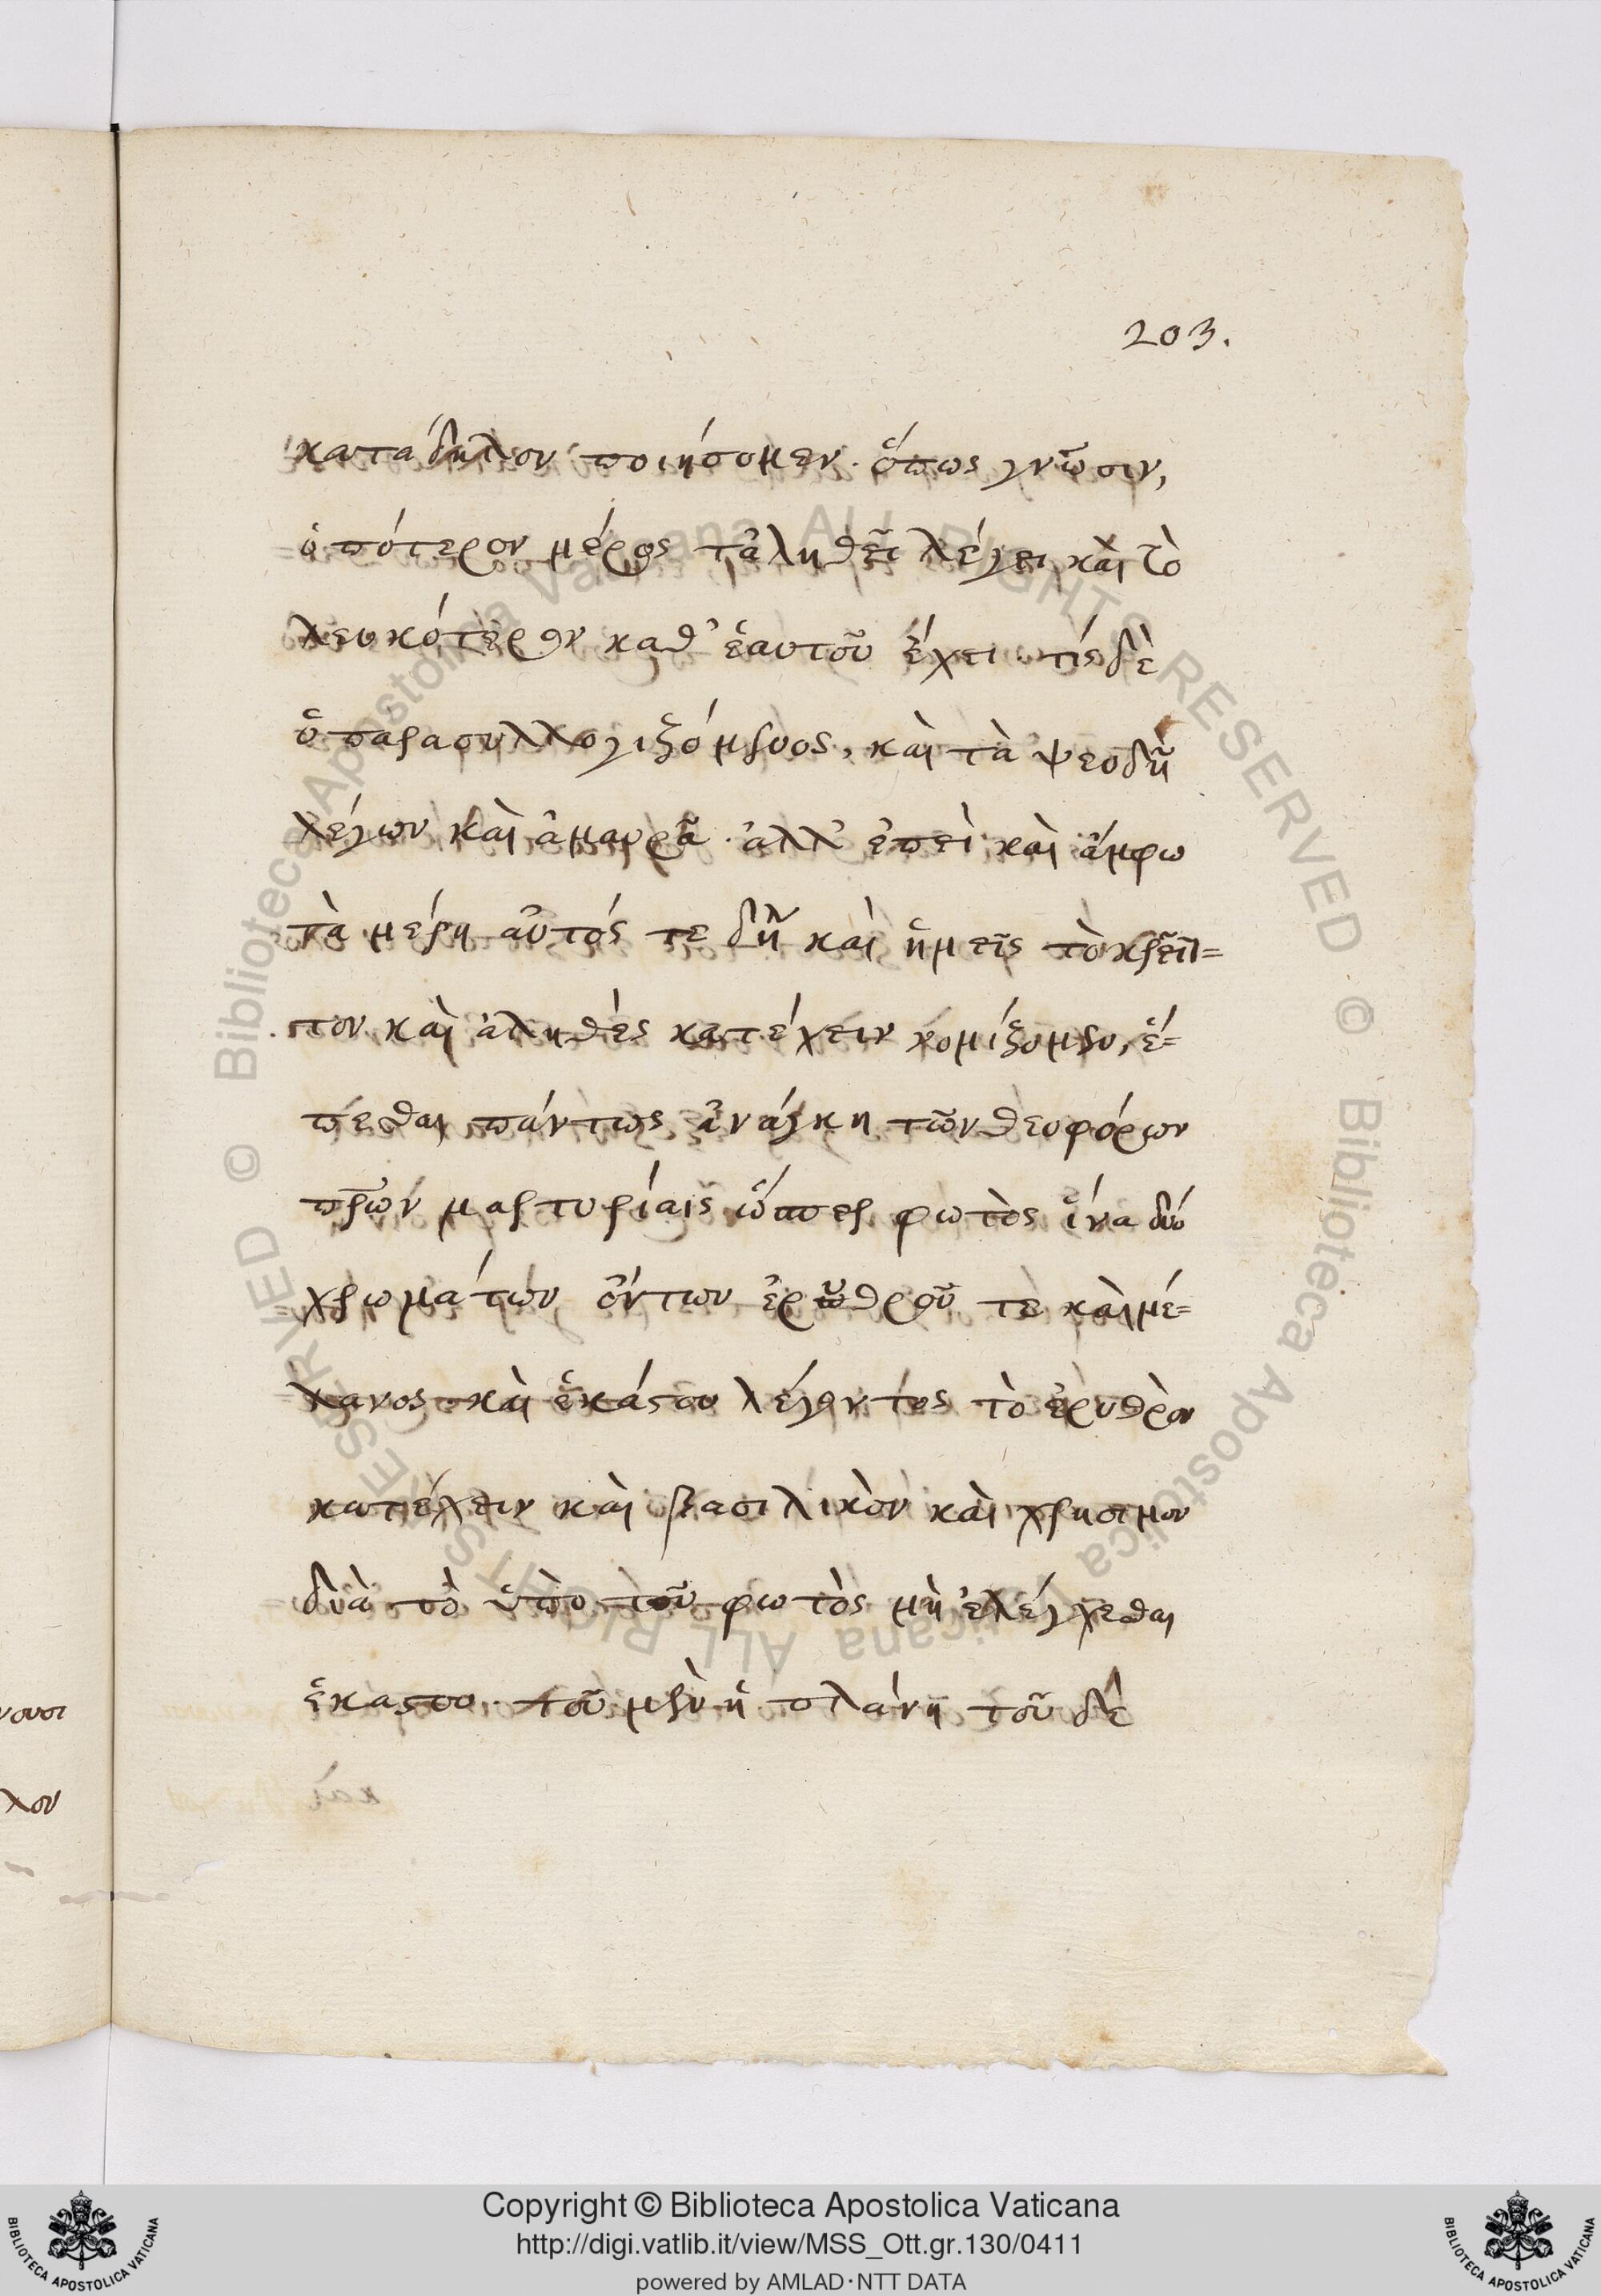 203.
κατάδηλον ποιήσομεν. ὅπως γνῶσιν,
ὁπότερον μέρος τἀληθεῖ λέγει καὶ τὸ
λευκότερον καθ' ἑαυτοῦ ἔχει· τίς δὲ
ὁ παρασυλλογιζόμενος, καὶ τὰ ψευδῆ
λέγων καὶ ἀμαυρᾶ. ἀλλ' ἐπεὶ καὶ ἄμφω
τὰ μέρη αὐτός τε δὴ καὶ ἡμεῖς τὸ κρεῖτ=
τον καὶ ἀληθὲς κατέχειν νομίζομεν, ἕ=
πεσθαι πάντως ἀνάγκη τῶν θεοφόρων
πρῶν μαρτυρίαις ὥσπερ φωτὸς ἵνα δύο
χρωμάτων ὄντων ἐρυθροῦ τε καὶ μέ=
λανος καὶ ἑκάστου λέγοντος τὸ ἐρυθρὸν
κατέχειν καὶ βασιλικὸν καὶ χρησιμον
διὰ τὸ ὑπὸ τοῦ φωτὸς μὴ ἐλέγχεσθαι
ἑκαστου. τοῦ μὲν ἡ πλάνη τοῦ δὲ
νουσι
λου
Copyright © Biblioteca Apostolica Vaticana
http://digi.vatlib.it/view/MSS_Ott.gr.130/0411
powered by AMLAD·NTT DATA
BIBLIOTECA APOSTOLICA VATICANA
BIBLIOTECA APOSTOLICA VATICANA
© Biblioteca Apostolica Vaticana ALL RIGHTS RESERVED
© Biblioteca Apostolica Vaticana ALL RIGHTS RESERVED